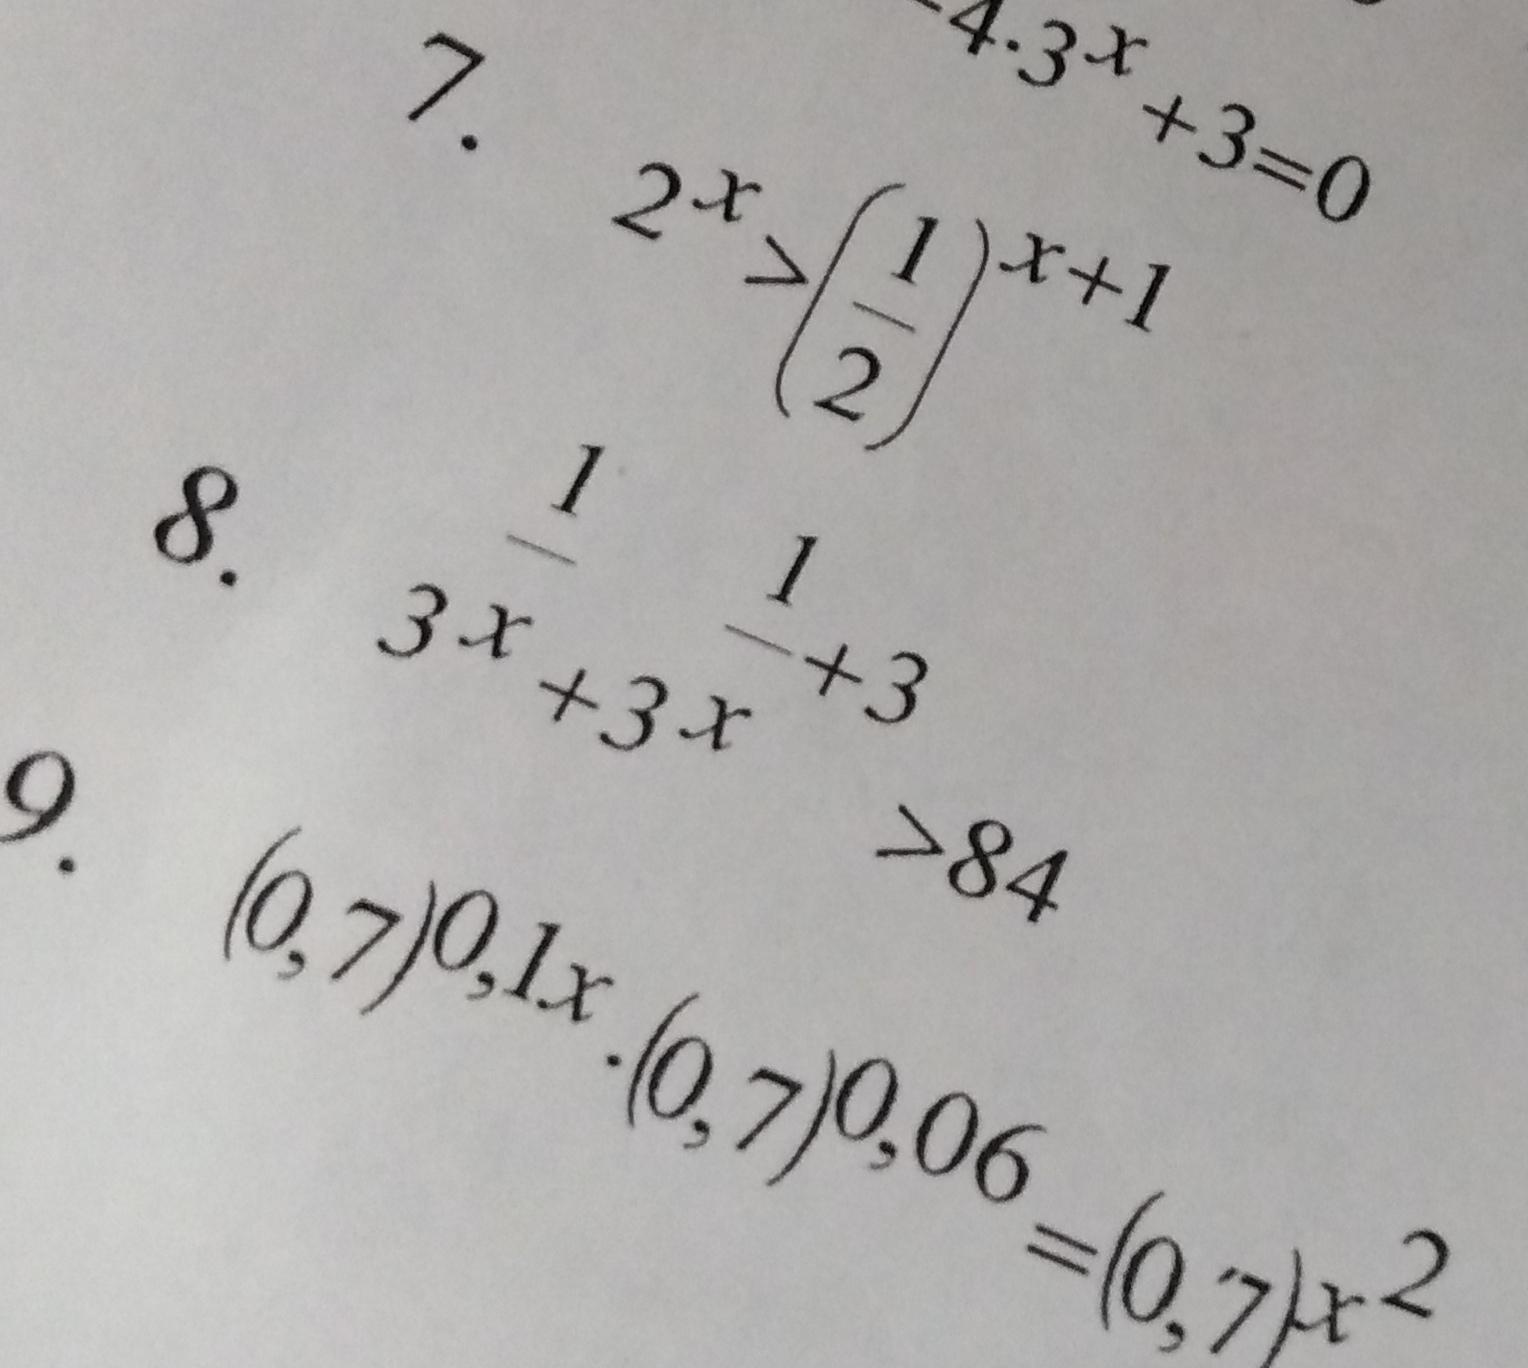 -4·3^x+3=0
7. 2^x>(1/2)^x+1
8. 3^1/x+3^1/x+3>84
9. (0,7)^0,1x·(0,7)^0,06=(0,7)^x^2